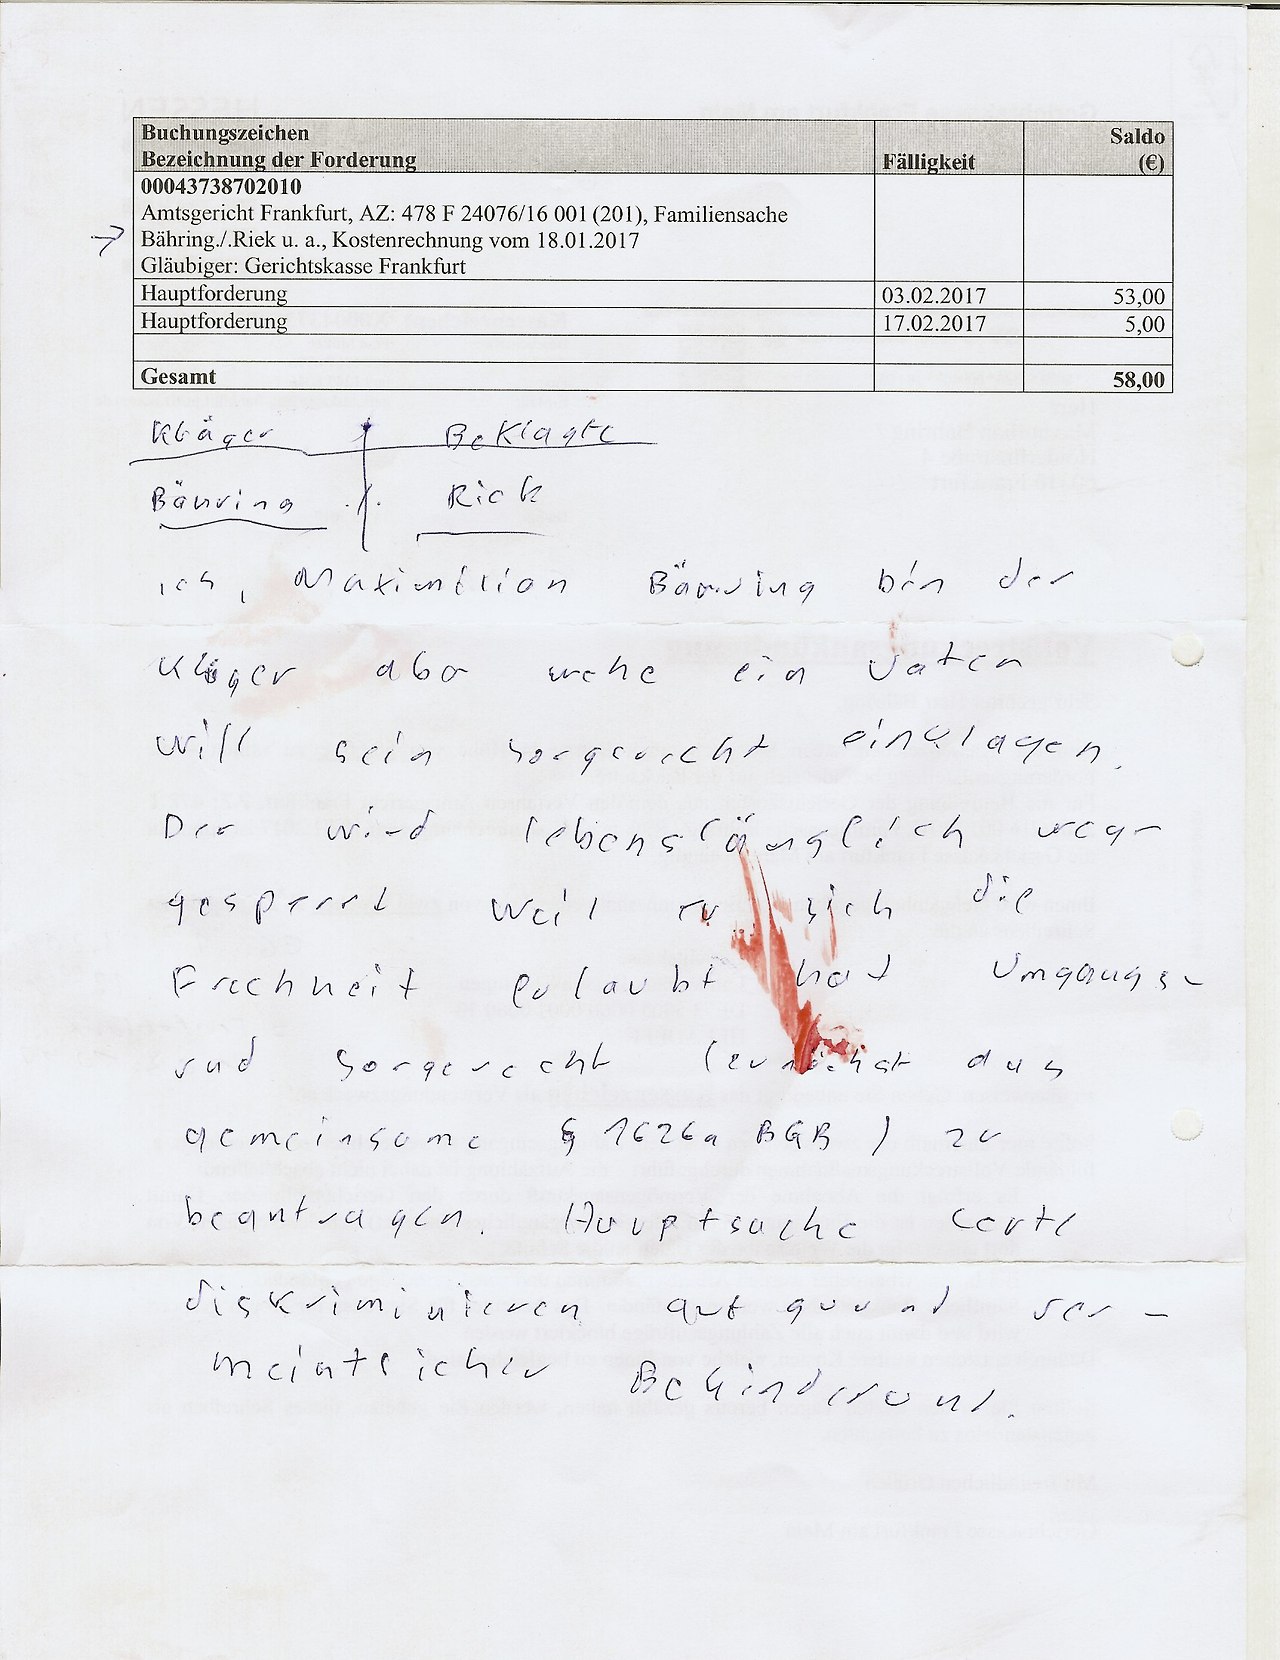 Buchungszeichen
Bezeichnung der Forderung Fälligkeit Saldo (€)
00043738702010
Amtsgericht Frankfurt, AZ: 478 F 24076/16 001 (201), Familiensache
Bähring./.Riek u. a., Kostenrechnung vom 18.01.2017
Gläubiger: Gerichtskasse Frankfurt
Hauptforderung 03.02.2017 53,00
Hauptforderung 17.02.2017 5,00
Gesamt 58,00
Kläger Beklagte
Bähring ./. Riek
ich, Maximilian Bähring bin der
Kläger aber wehe ein Vater
will sein Sorgerecht einklagen.
Der wird lebenslänglich weg-
gesperrt weil er sich die
Frechheit erlaubt hat Umgangs-
und Sorgerecht ( das
gemeinsame § 1626a BGB ) zu
beantragen. Hauptsache Leute
diskriminieren aufgrund ver-
meintlicher Behinderung.